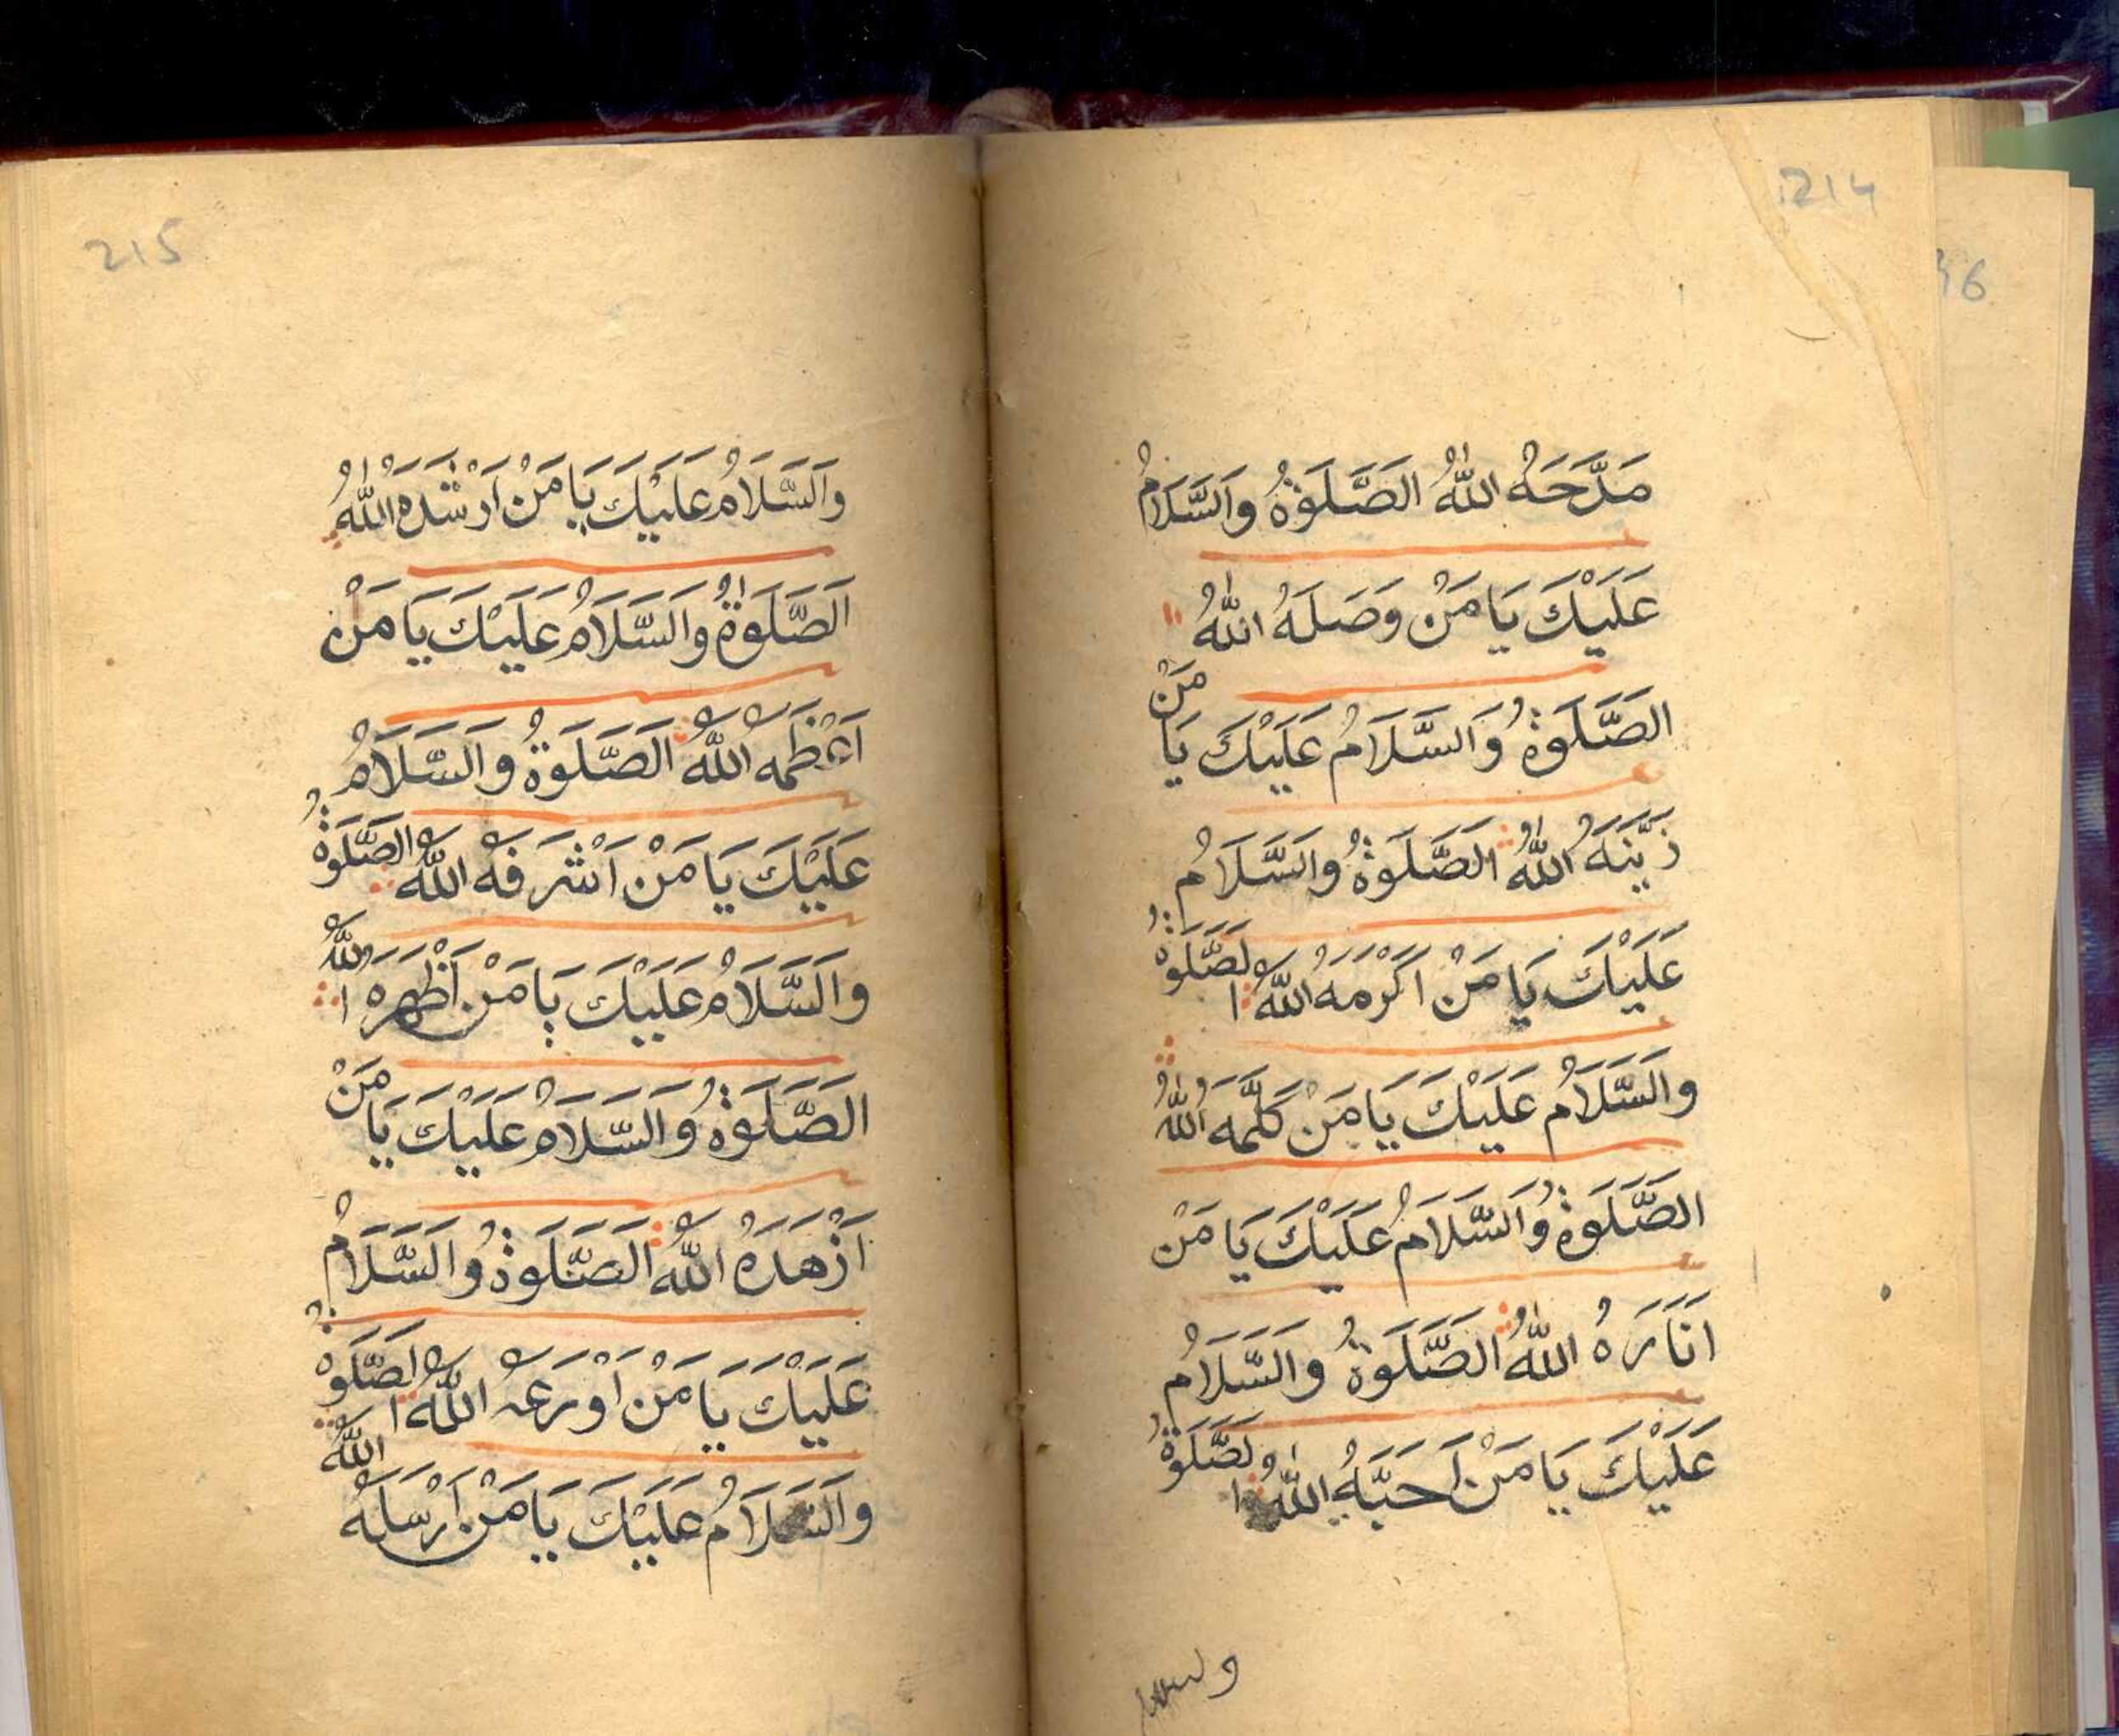 214
مَدَّحَهُ اللّٰهُ الصَّلَوةُ وَالسَّلَامُ
عَلَيْكَ يَا مَنْ وَصَلَهُ اللّٰهُ
الصَّلَوةُ وَالسَّلَامُ عَلَيْكَ يَا مَنْ
زَيَّنَهُ اللّٰهُ الصَّلَوةُ وَالسَّلَامُ
عَلَيْكَ يَا مَنْ اَكْرَمَهُ اللّٰهُ الصَّلَوةُ
وَالسَّلَامُ عَلَيْكَ يَا مَنْ كَلَّمَهُ اللّٰهُ
الصَّلَوةُ وَالسَّلَامُ عَلَيْكَ يَا مَنْ
اَنَارَهُ اللّٰهُ الصَّلَوةُ وَالسَّلَامُ
عَلَيْكَ يَا مَنْ اَحَبَّهُ اللّٰهُ الصَّلَوةُ
والسلام
36
215
وَالسَّلَامُ عَلَيْكَ يَا مَنْ اَرْشَدَهُ اللّٰهُ
اَلصَّلَوٰةُ وَالسَّلَامُ عَلَيْكَ يَا مَنْ
اَعْظَمَهُ اللّٰهُ الصَّلَوةُ وَالسَّلَامُ
عَلَيْكَ يَا مَنْ اَشْرَفَهُ اللّٰهُ الصَّلَوةُ
وَالسَّلَامُ عَلَيْكَ يَا مَنْ اَظْهَرَهُ اللّٰهُ
الصَّلَوةُ وَالسَّلَامُ عَلَيْكَ يَا مَنْ
اَزْهَدَهُ اللّٰهُ الصَّلَوةُ وَالسَّلَامُ
عَلَيْكَ يَا مَنْ اَوْرَعَهُ اللّٰهُ الصَّلَوةُ
وَالسَّلَامُ عَلَيْكَ يَا مَنْ اَرْسَلَهُ اللّٰهُ